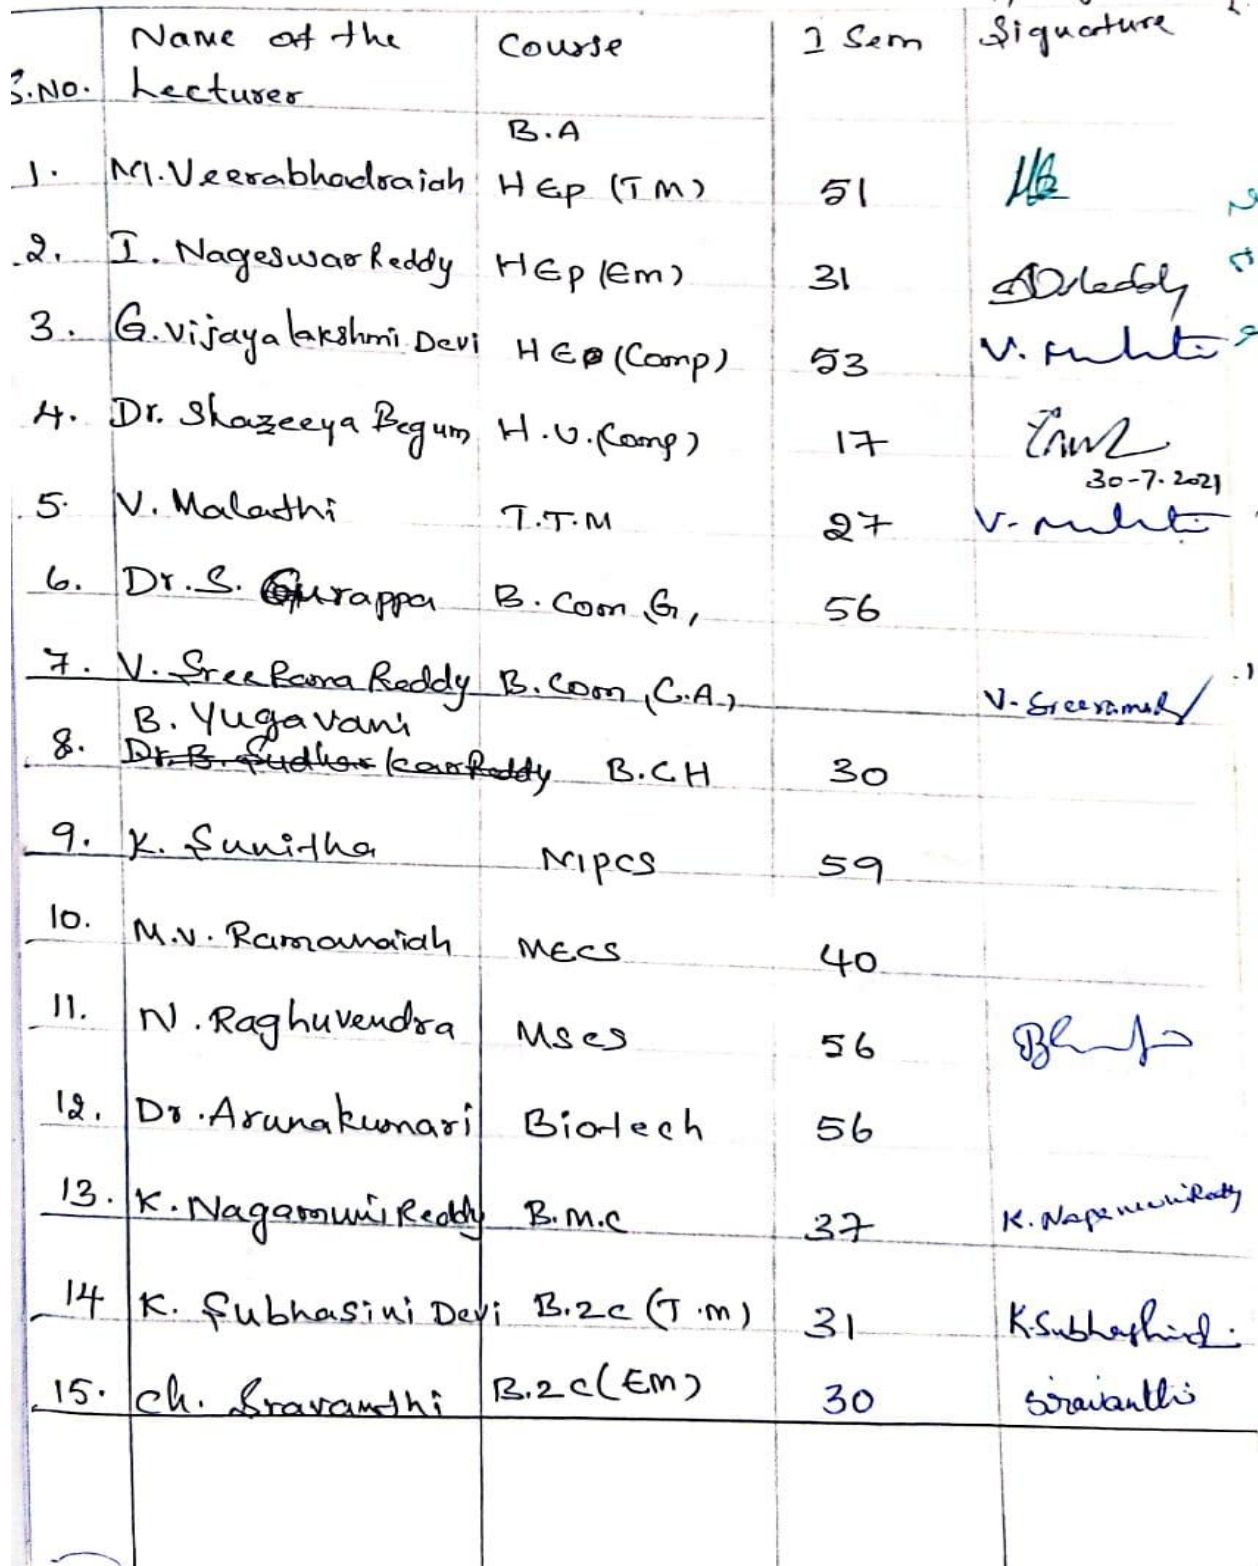 S.No. Name of the Lecturer Course I Sem Signature
B.A
1. M.Veerabhadraiah HEp (TM) 51
2. I. Nageswar Reddy HEp (Em) 31
3. G.Vijaya lakshmi Devi HEp (Comp) 53
4. Dr. Shazeeya Begum H.U.(Comp) 17
30-7-2021
5. V. Malathi T.T.M 27
6. Dr.S. Gurappa B.Com (G) 56
7. V. Sree Rama Reddy B.Com (C.A) V. Sreeramar
B. Yugavani
8. Dr. B. Sudhakar Reddy B.C.H 30
9. K. Sunitha MPCS 59
10. M.V. Ramanaiah MECS 40
11. N. Raghuvendra MSCS 56
12. Dr. Arunakumari Biotech 56
13. K. Nagamuni Reddy B.M.C 37 K. Nagamuni Reddy
14 K. Subhasini Devi B.Z.C (T.m) 31
15. Ch. Sravanthi B.Z.C (EM) 30 Sravanthi